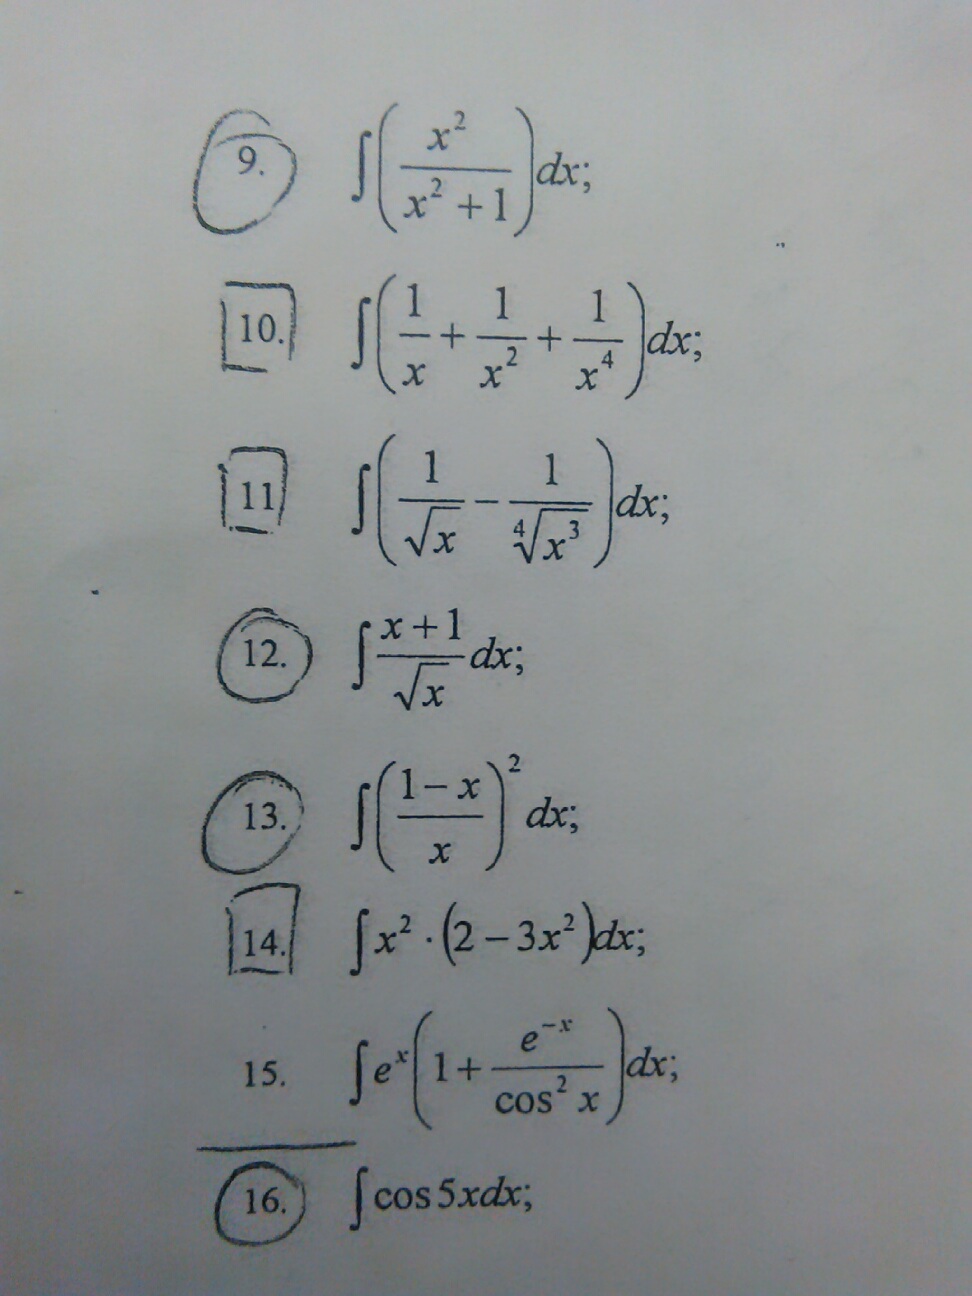 9. ∫(x²/(x²+1))dx;
10. ∫(1/x + 1/x² + 1/x⁴)dx;
11 ∫(1/√x − 1/⁴√x³)dx;
12. ∫(x+1)/√x dx;
13. ∫((1−x)/x)² dx;
14. ∫x²·(2−3x²)dx;
15. ∫eˣ(1 + e⁻ˣ/cos² x)dx;
16. ∫cos5xdx;